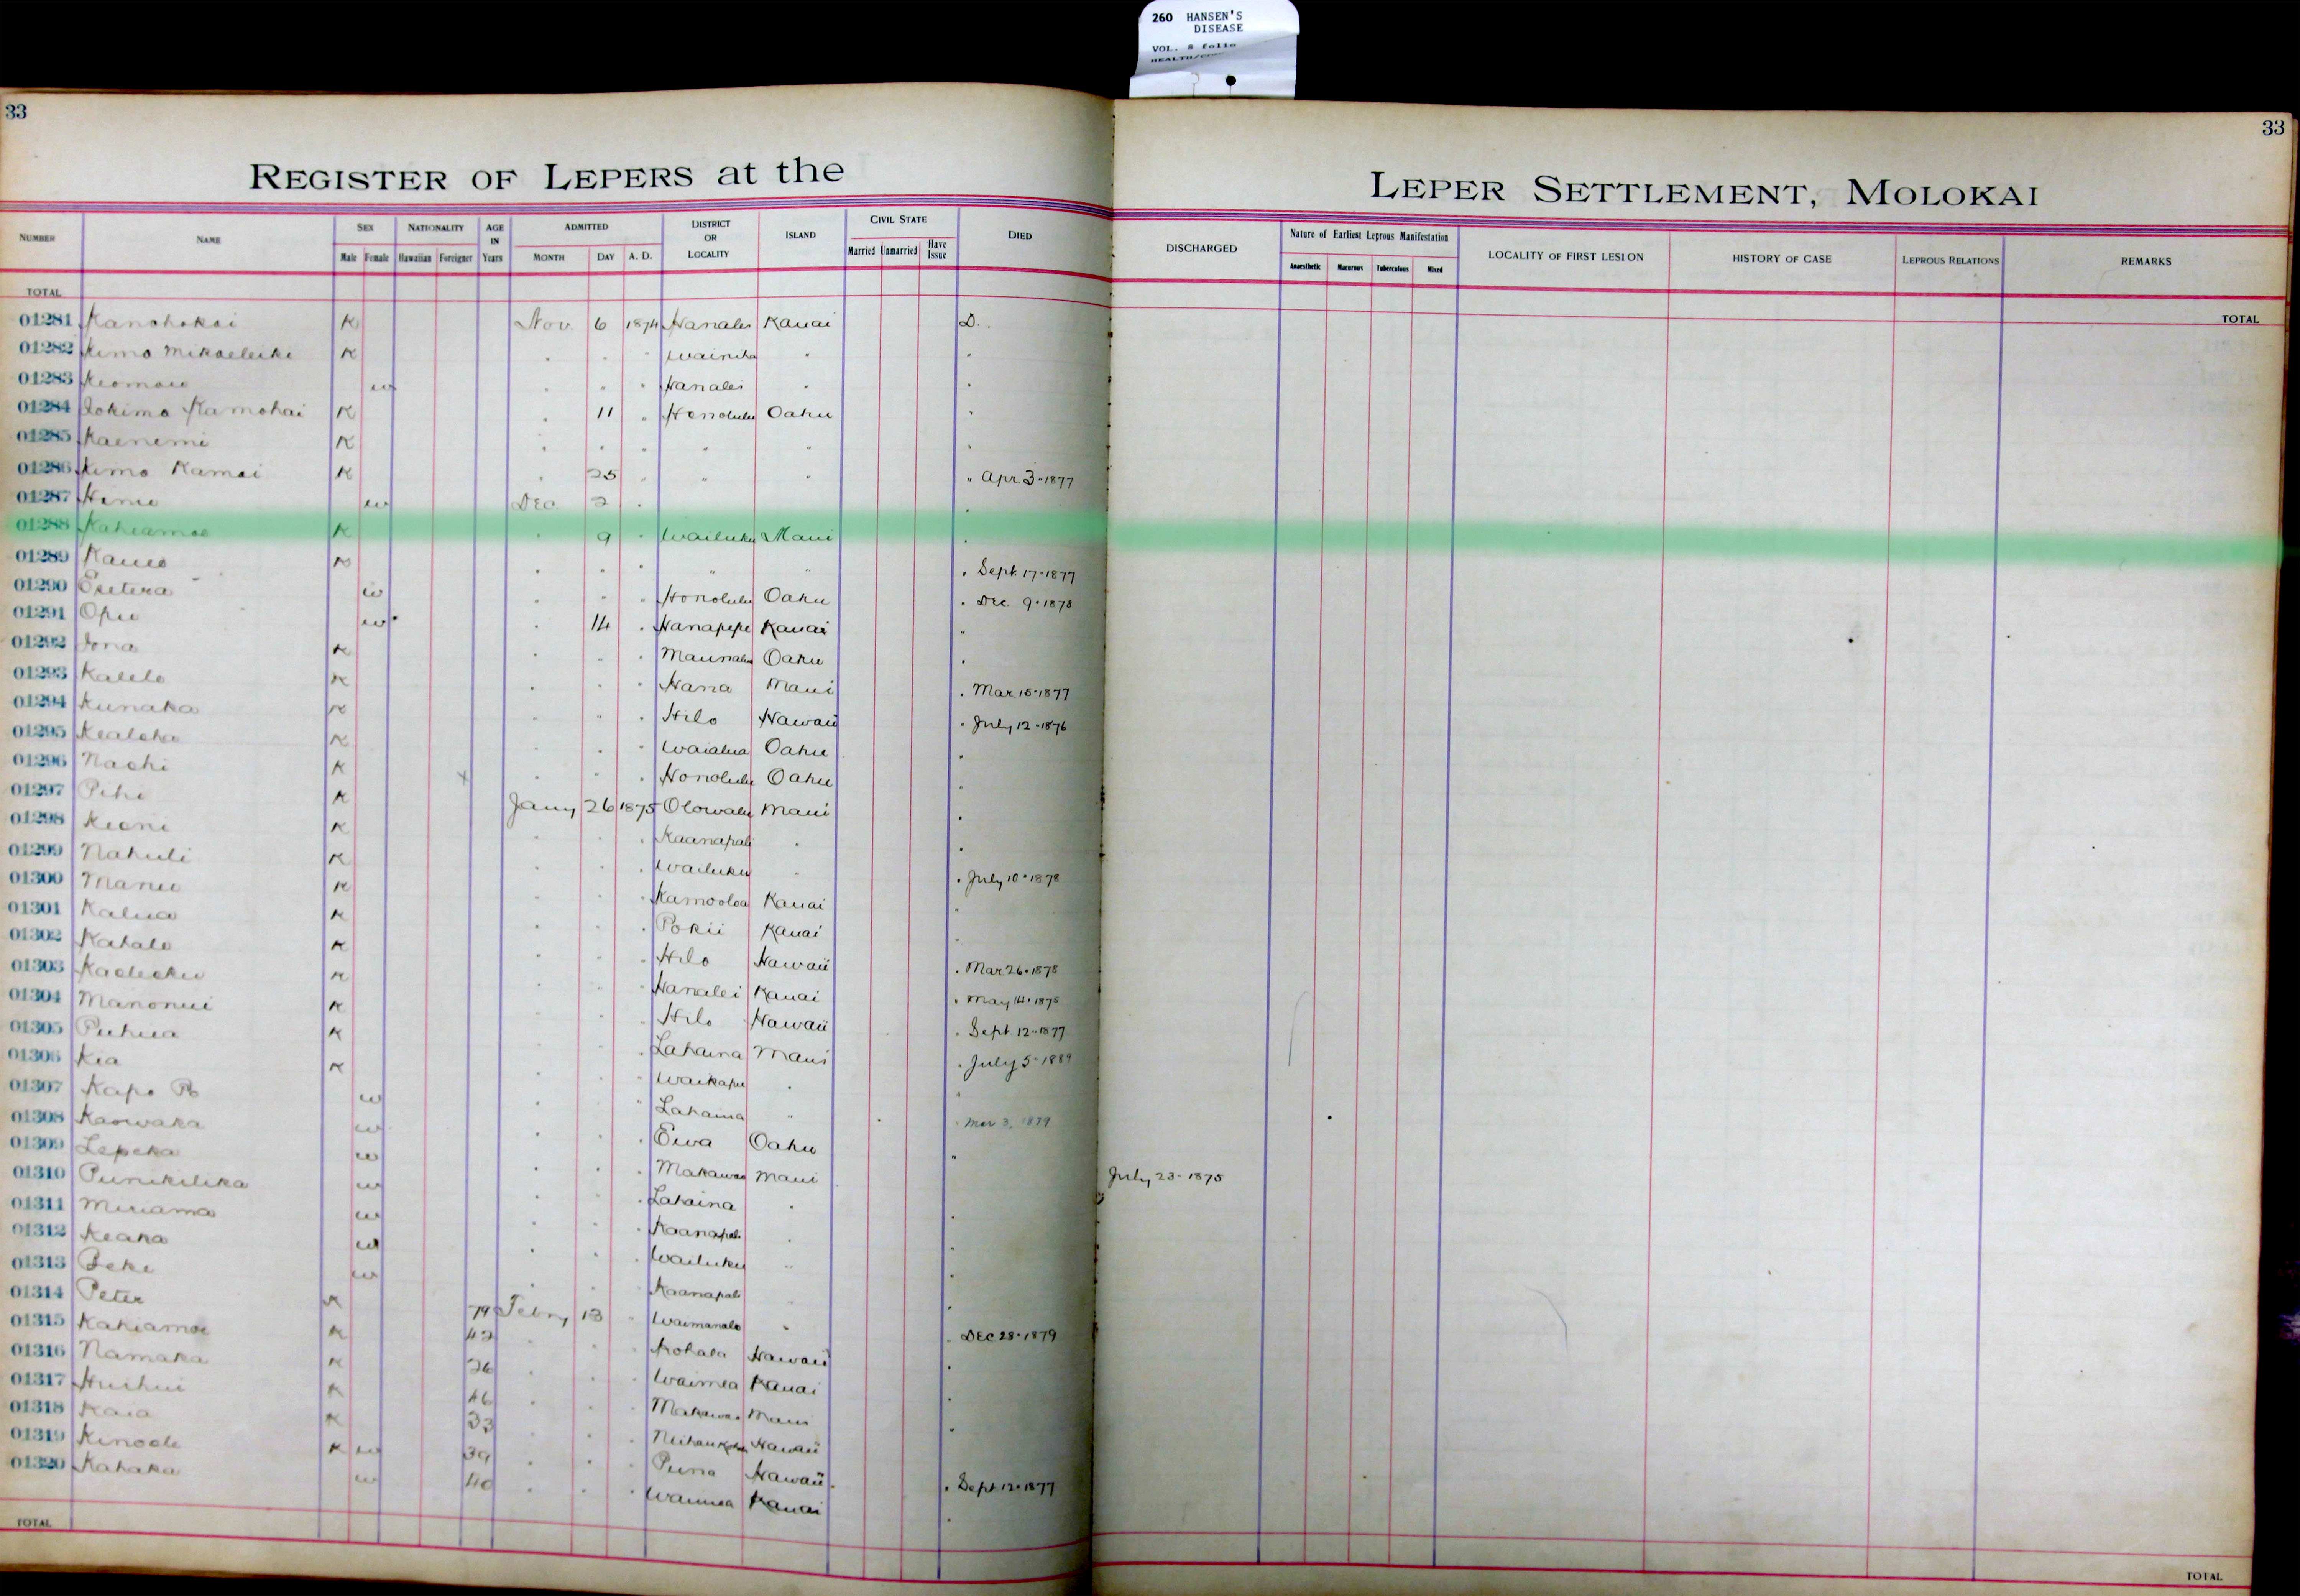 260 HANSEN'S
DISEASE
VOL. 8 folio
33
33
REGISTER OF LEPERS at the LEPER SETTLEMENT, MOLOKAI
NUMBER NAME SEX NATIONALITY AGE IN Years ADMITTED DISTRICT OR LOCALITY ISLAND CIVIL STATE DIED DISCHARGED Nature of Earliest Leprous Manifestation LOCALITY OF FIRST LESION HISTORY OF CASE LEPROUS RELATIONS REMARKS
Male Female Hawaiian Foreigner MONTH DAY A. D. Married Unmarried Have Issue Anaesthetic Macurous Tuberculous Mixed
TOTAL TOTAL
01281 Kanohokai K Nov. 6 1874 Hanalei Kauai D.
01282 Kimo Mikaeleike K " " " Wainiha " "
01283 Keomaio w " " " Hanalei " "
01284 Iokimo Kamohai K " 11 " Honolulu Oahu "
01285 Kaenemi K " " " " " "
01286 Kimo Kamai K " 25 " " " " Apr 3-1877
01287 w Dec 2 " "
01288 Kahiamoe K " 9 " Wailuku Maui "
01289 K " " " " " " Sept. 17-1877
01290 w " " " Honolulu Oahu " Dec. 9-1878
01291 Opu w " 14 " Hanapepe Kauai "
01292 Iona K " " " Oahu "
01293 Kalelo K " " " Hana Maui " Mar 15-1877
01294 Kunaka K " " " Hilo Hawaii " July 12-1876
01295 Kealoha K " " " Waialua Oahu "
01296 Naohi K x " " " Honolulu Oahu "
01297 Pihi K Jany 26 1875 Olowalu Maui "
01298 Keoni K " " " Kaanapali " "
01299 Nahuli K " " " Wailuku " " July 10-1878
01300 Manu K " " " Kamooloa Kauai "
01301 Kalua K " " " Pokii Kauai "
01302 Kahalo K " " " Hilo Hawaii " Mar 26-1878
01303 K " " " Hanalei Kauai " May 14-1875
01304 Manonui K " " " Hilo Hawaii " Sept 12-1877
01305 Puhua K " " " Lahaina Maui " July 5-1889
01306 Kia K " " " Waikapu " "
01307 Kapo w " " " Lahaina " " Mar 3, 1879
01308 Kaowaka w " " " Ewa Oahu "
01309 Lepeka w " " " Makawao Maui July 23-1875
01310 Punikilika w " " " Lahaina " "
01311 Miriama w " " " Kaanapali " "
01312 Keaka w " " " Wailuku " "
01313 Beke w " " " Kaanapali " "
01314 Peter K 79 Febry 13 " Waimanalo " " DEC 28-1879
01315 Kahiamoe K 42 " " " Kohala Hawaii "
01316 Namaka K 26 " " " Waimea Kauai "
01317 Huihui K 46 " " " Makawao Maui "
01318 Kaia K 33 " " " Hawaii
01319 Kinoole K w 39 " " " Puna Hawaii " Sept 12-1877
01320 Kahaka w 40 " " " Waimea Kauai "
TOTAL TOTAL